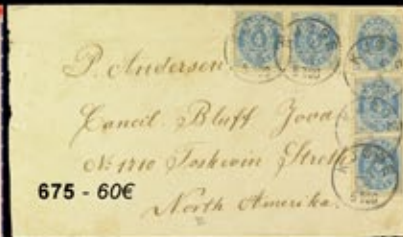 P. Andersen
Concil Bluff Jova
No 1710 Toskovin Streth
North Amerika.
675 - 60€